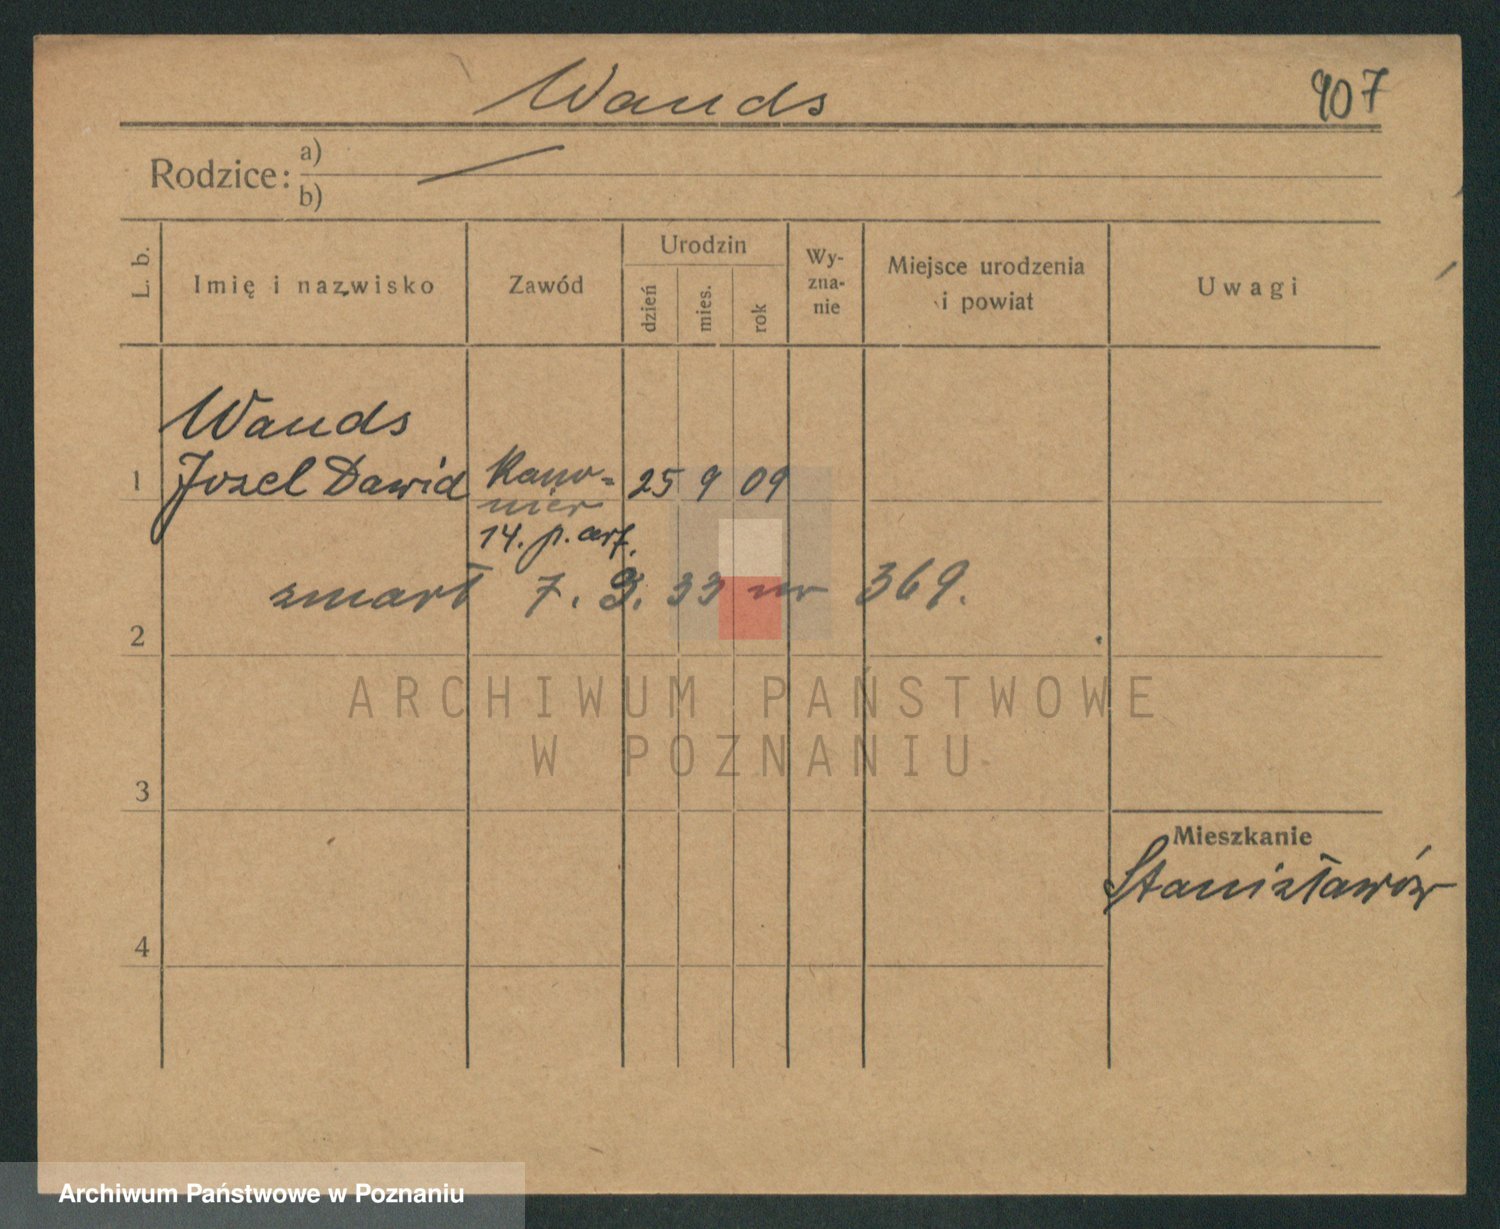 Wands 907
Rodzice: a)
b)
L. b.
Imię i nazwisko
Zawód
Urodzin
dzień
mies.
rok
Wy-
zna-
nie
Miejsce urodzenia
i powiat
Uwagi
Wands
1 Jozel Dawid Kano- 25 9 09
nier
14. p. art.
zmarł 7. 9. 33 nr 369.
2
ARCHIWUM PAŃSTWOWE
W POZNANIU
3
Mieszkanie
Stanisławów
4
Archiwum Państwowe w Poznaniu